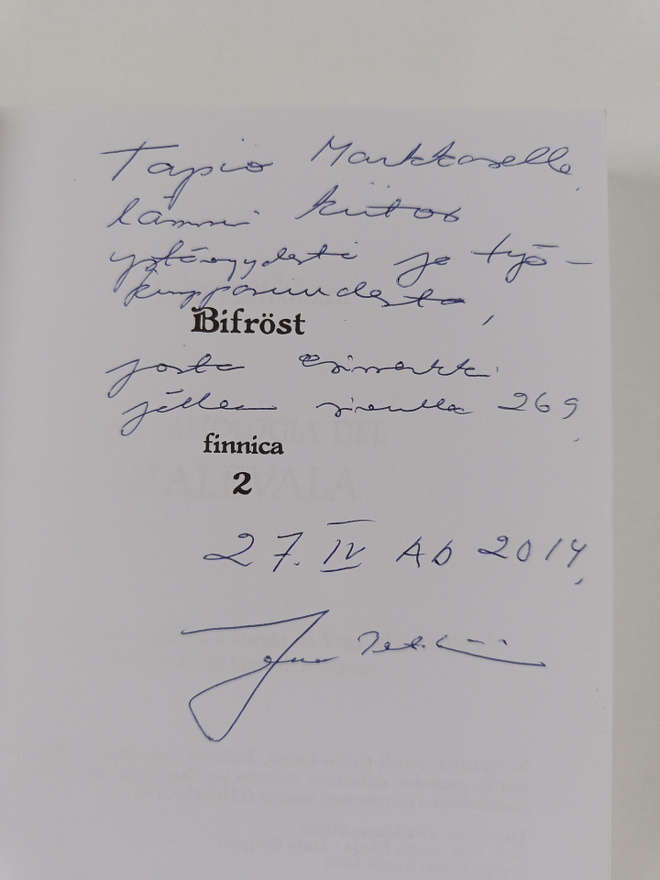 Tapio Markkaselle,
lämmin kiitos
ystävyydestä ja työ-
kumppanuudesta,
Bifröst
josta esimerkki
jälleen sivulla 269.
finnica
2
27. IV AD 2014,
KALEVALA